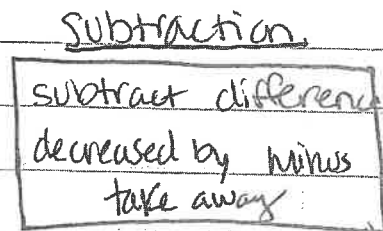 Subtraction
subtract difference
decreased by minus
take away